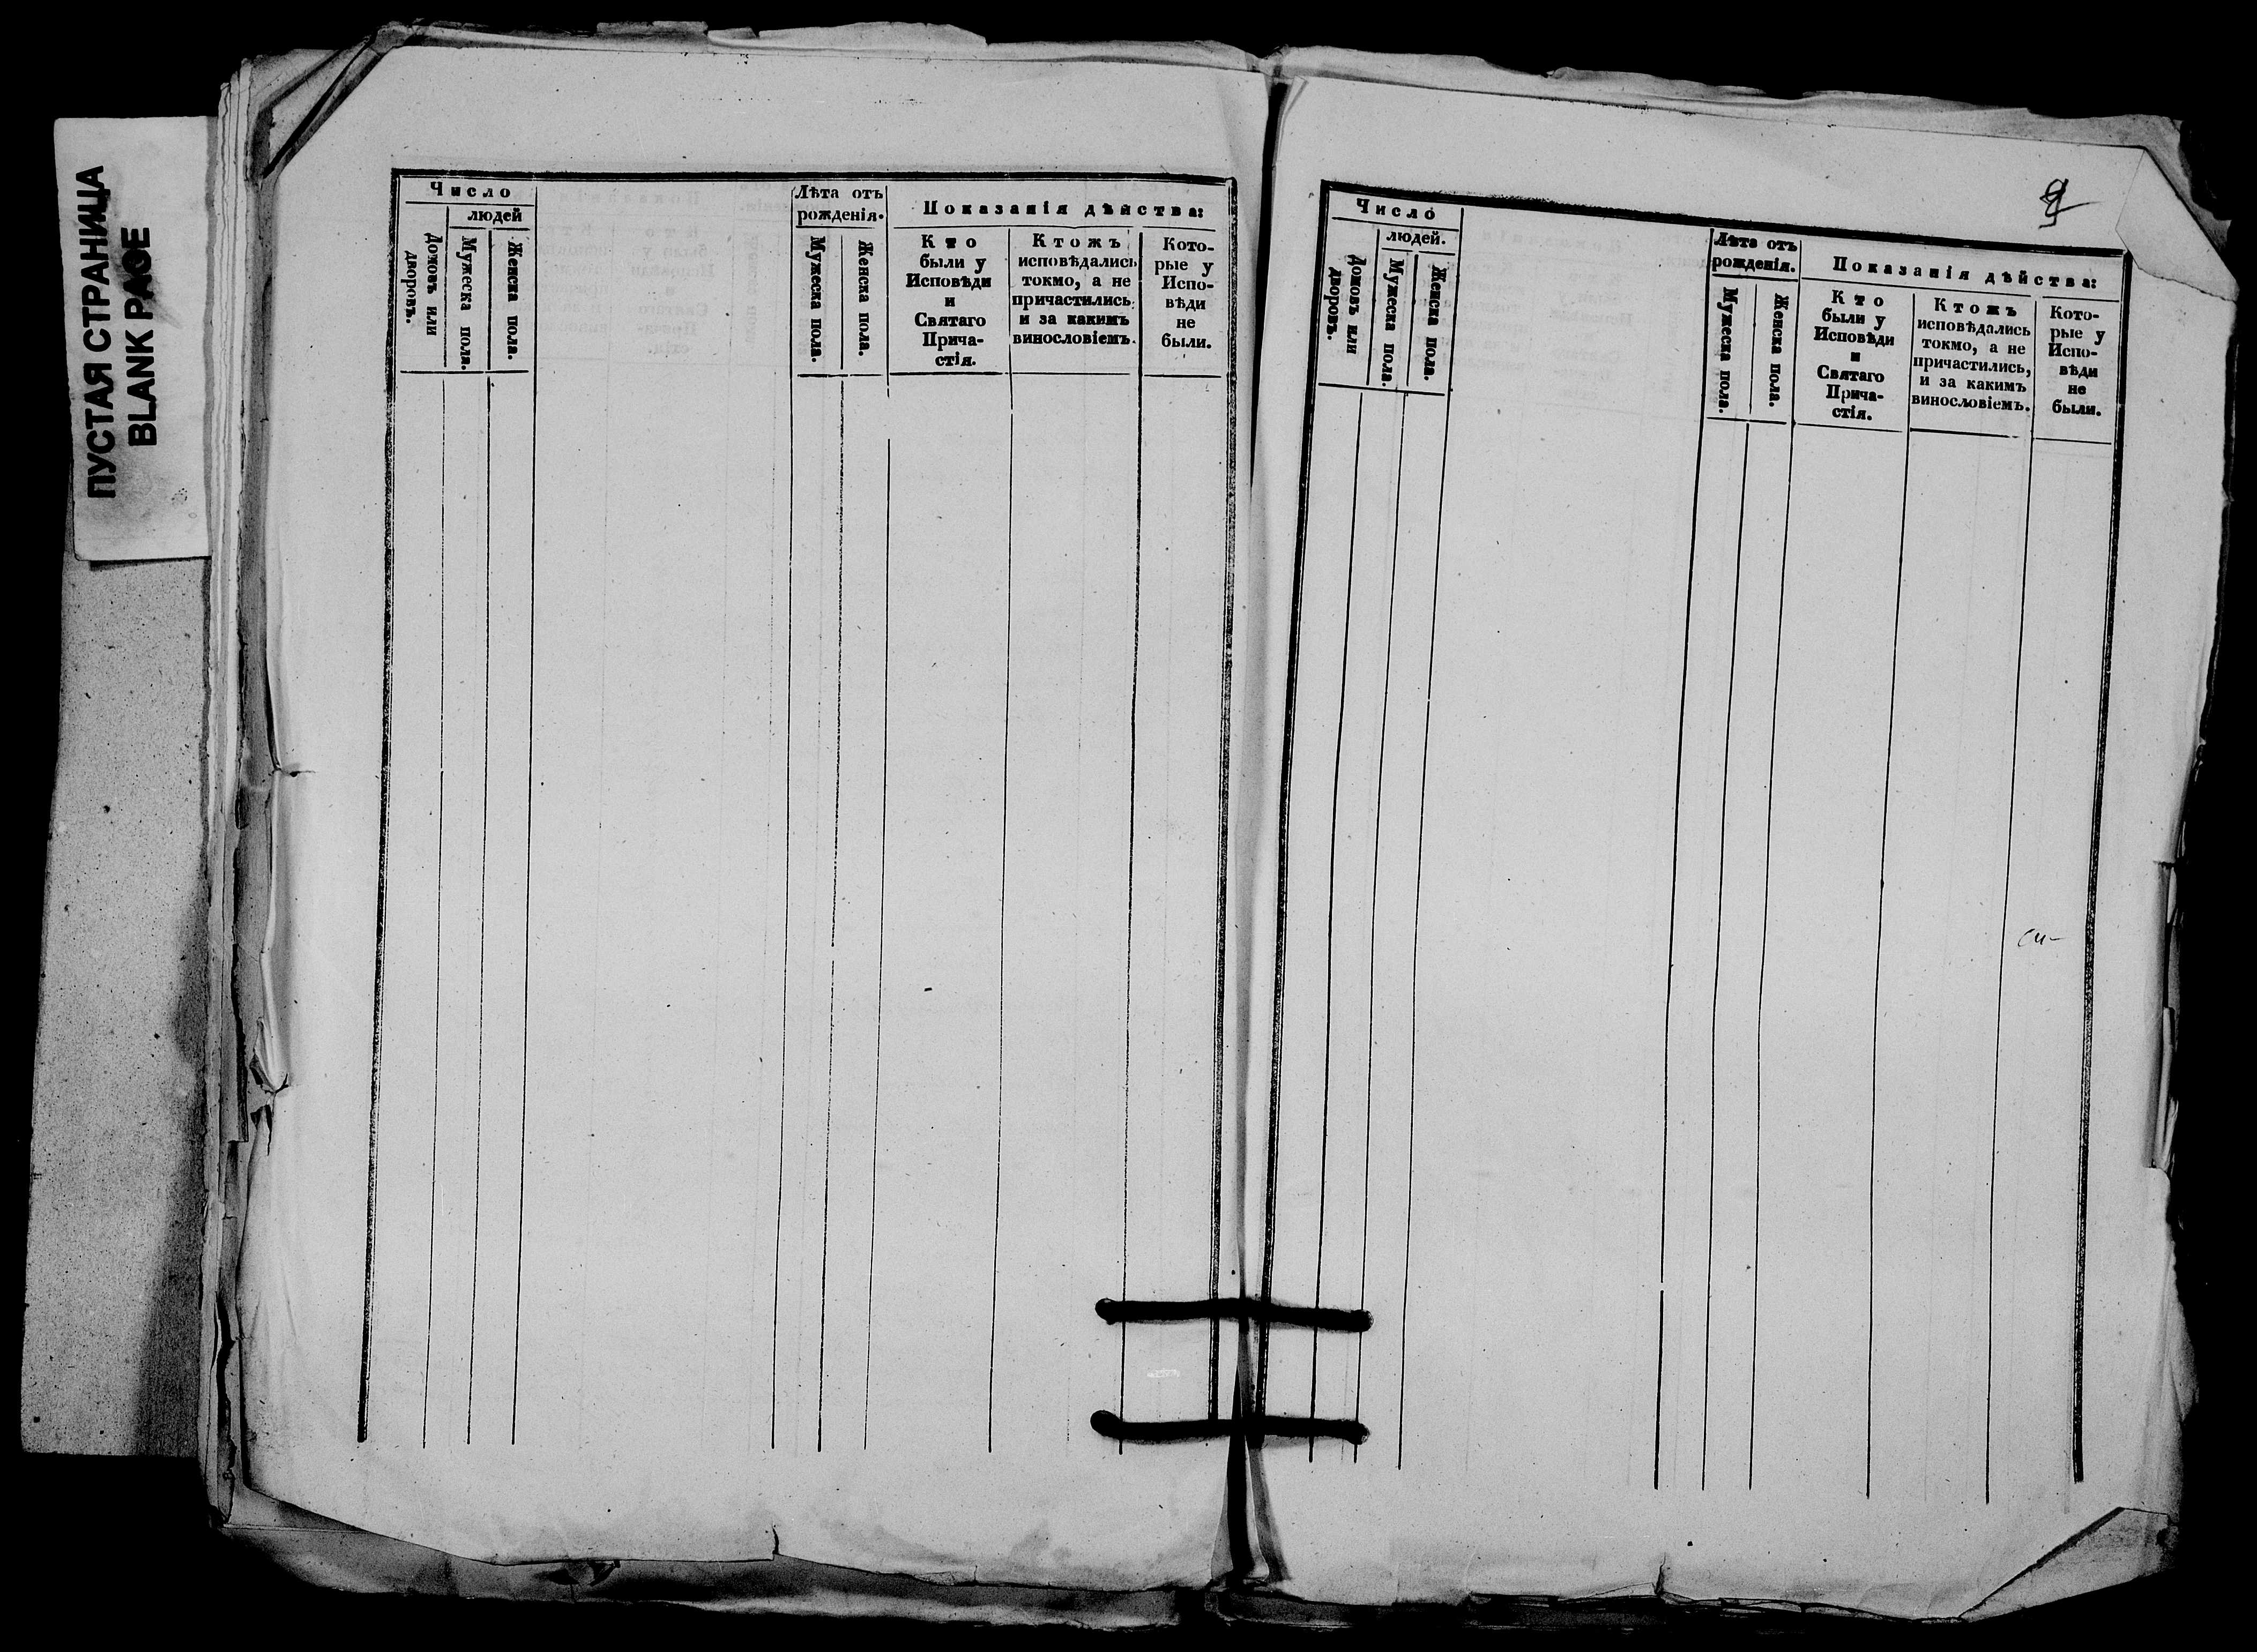 ПУСТАЯ СТРАНИЦА
BLANK PAGE
Число
людей
Домовъ или
дворовъ.
Мужеска пола.
Женска пола.
Лѣта отъ
рожденія.
Мужеска пола.
Женска пола.
Показанія дѣйства:
Кто
были у
Исповѣди
и
Святаго
Прича-
стія.
Ктожъ
исповѣдались
токмо, а не
причастились
и за какимъ
винословіемъ.
Кото-
рые у
Испо-
вѣди
не
были.
Число
людей.
Домовъ или
дворовъ.
Мужеска пола.
Женска пола.
Лѣта отъ
рожденія.
Мужеска пола.
Женска пола.
Показанія дѣйства:
Кто
были у
Исповѣди
и
Святаго
Прича-
стія.
Ктожъ
исповѣдались
токмо, а не
причастились,
и за какимъ
винословіемъ.
Кото-
рые у
Испо-
вѣди
не
были.